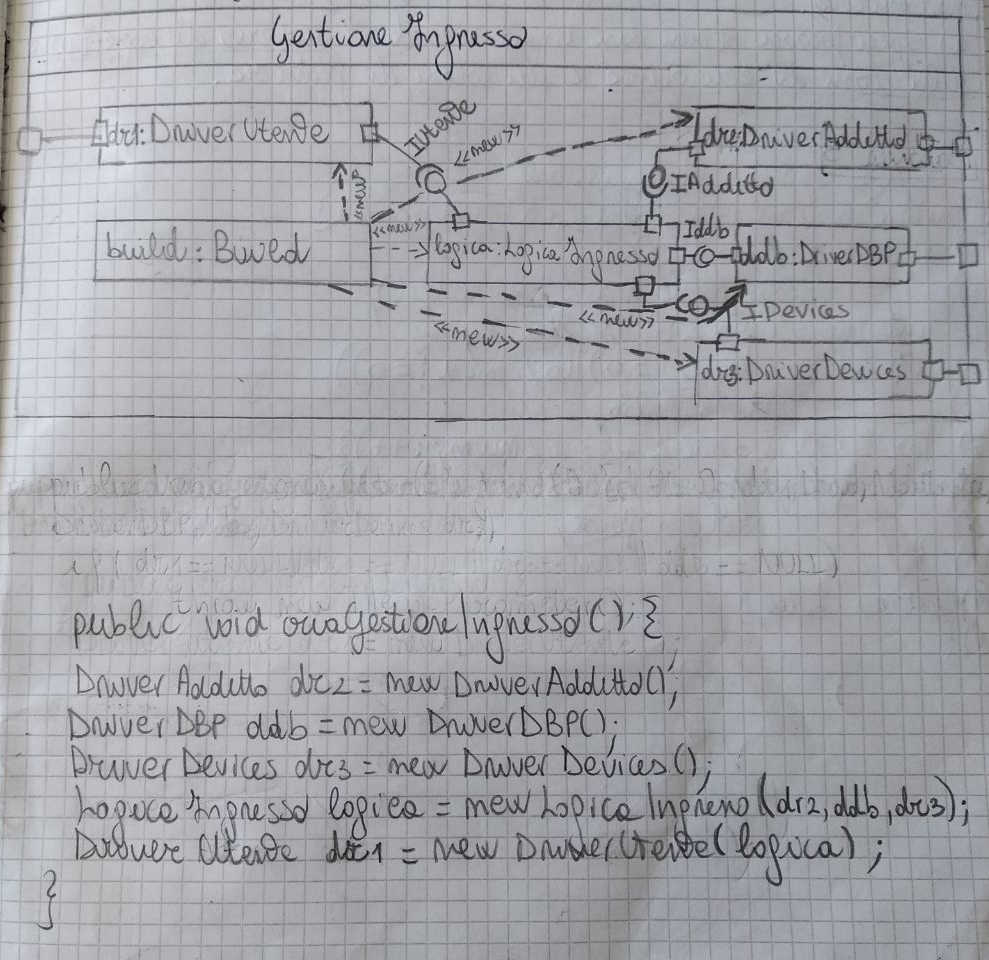 Gestione Ingresso
dr1:DriverUtente
IUtente
<<new>>
dr2:DriverAddetto
IAddetto
<<new>>
build:Build
<<new>>
logica:LogicaIngresso
Iddb
ddb:DriverDBP
IDevices
<<new>>
<<new>>
dr3:DriverDevices
public void Gestione Ingresso() {
DriverAddetto dr2 = new DriverAddetto();
DriverDBP ddb = new DriverDBP();
Driver Devices dr3 = new Driver Devices();
Logica Ingresso logica = new Logica Ingresso(dr2, ddb, dr3);
Driver Utente dr1 = new DriverUtente(logica);
}